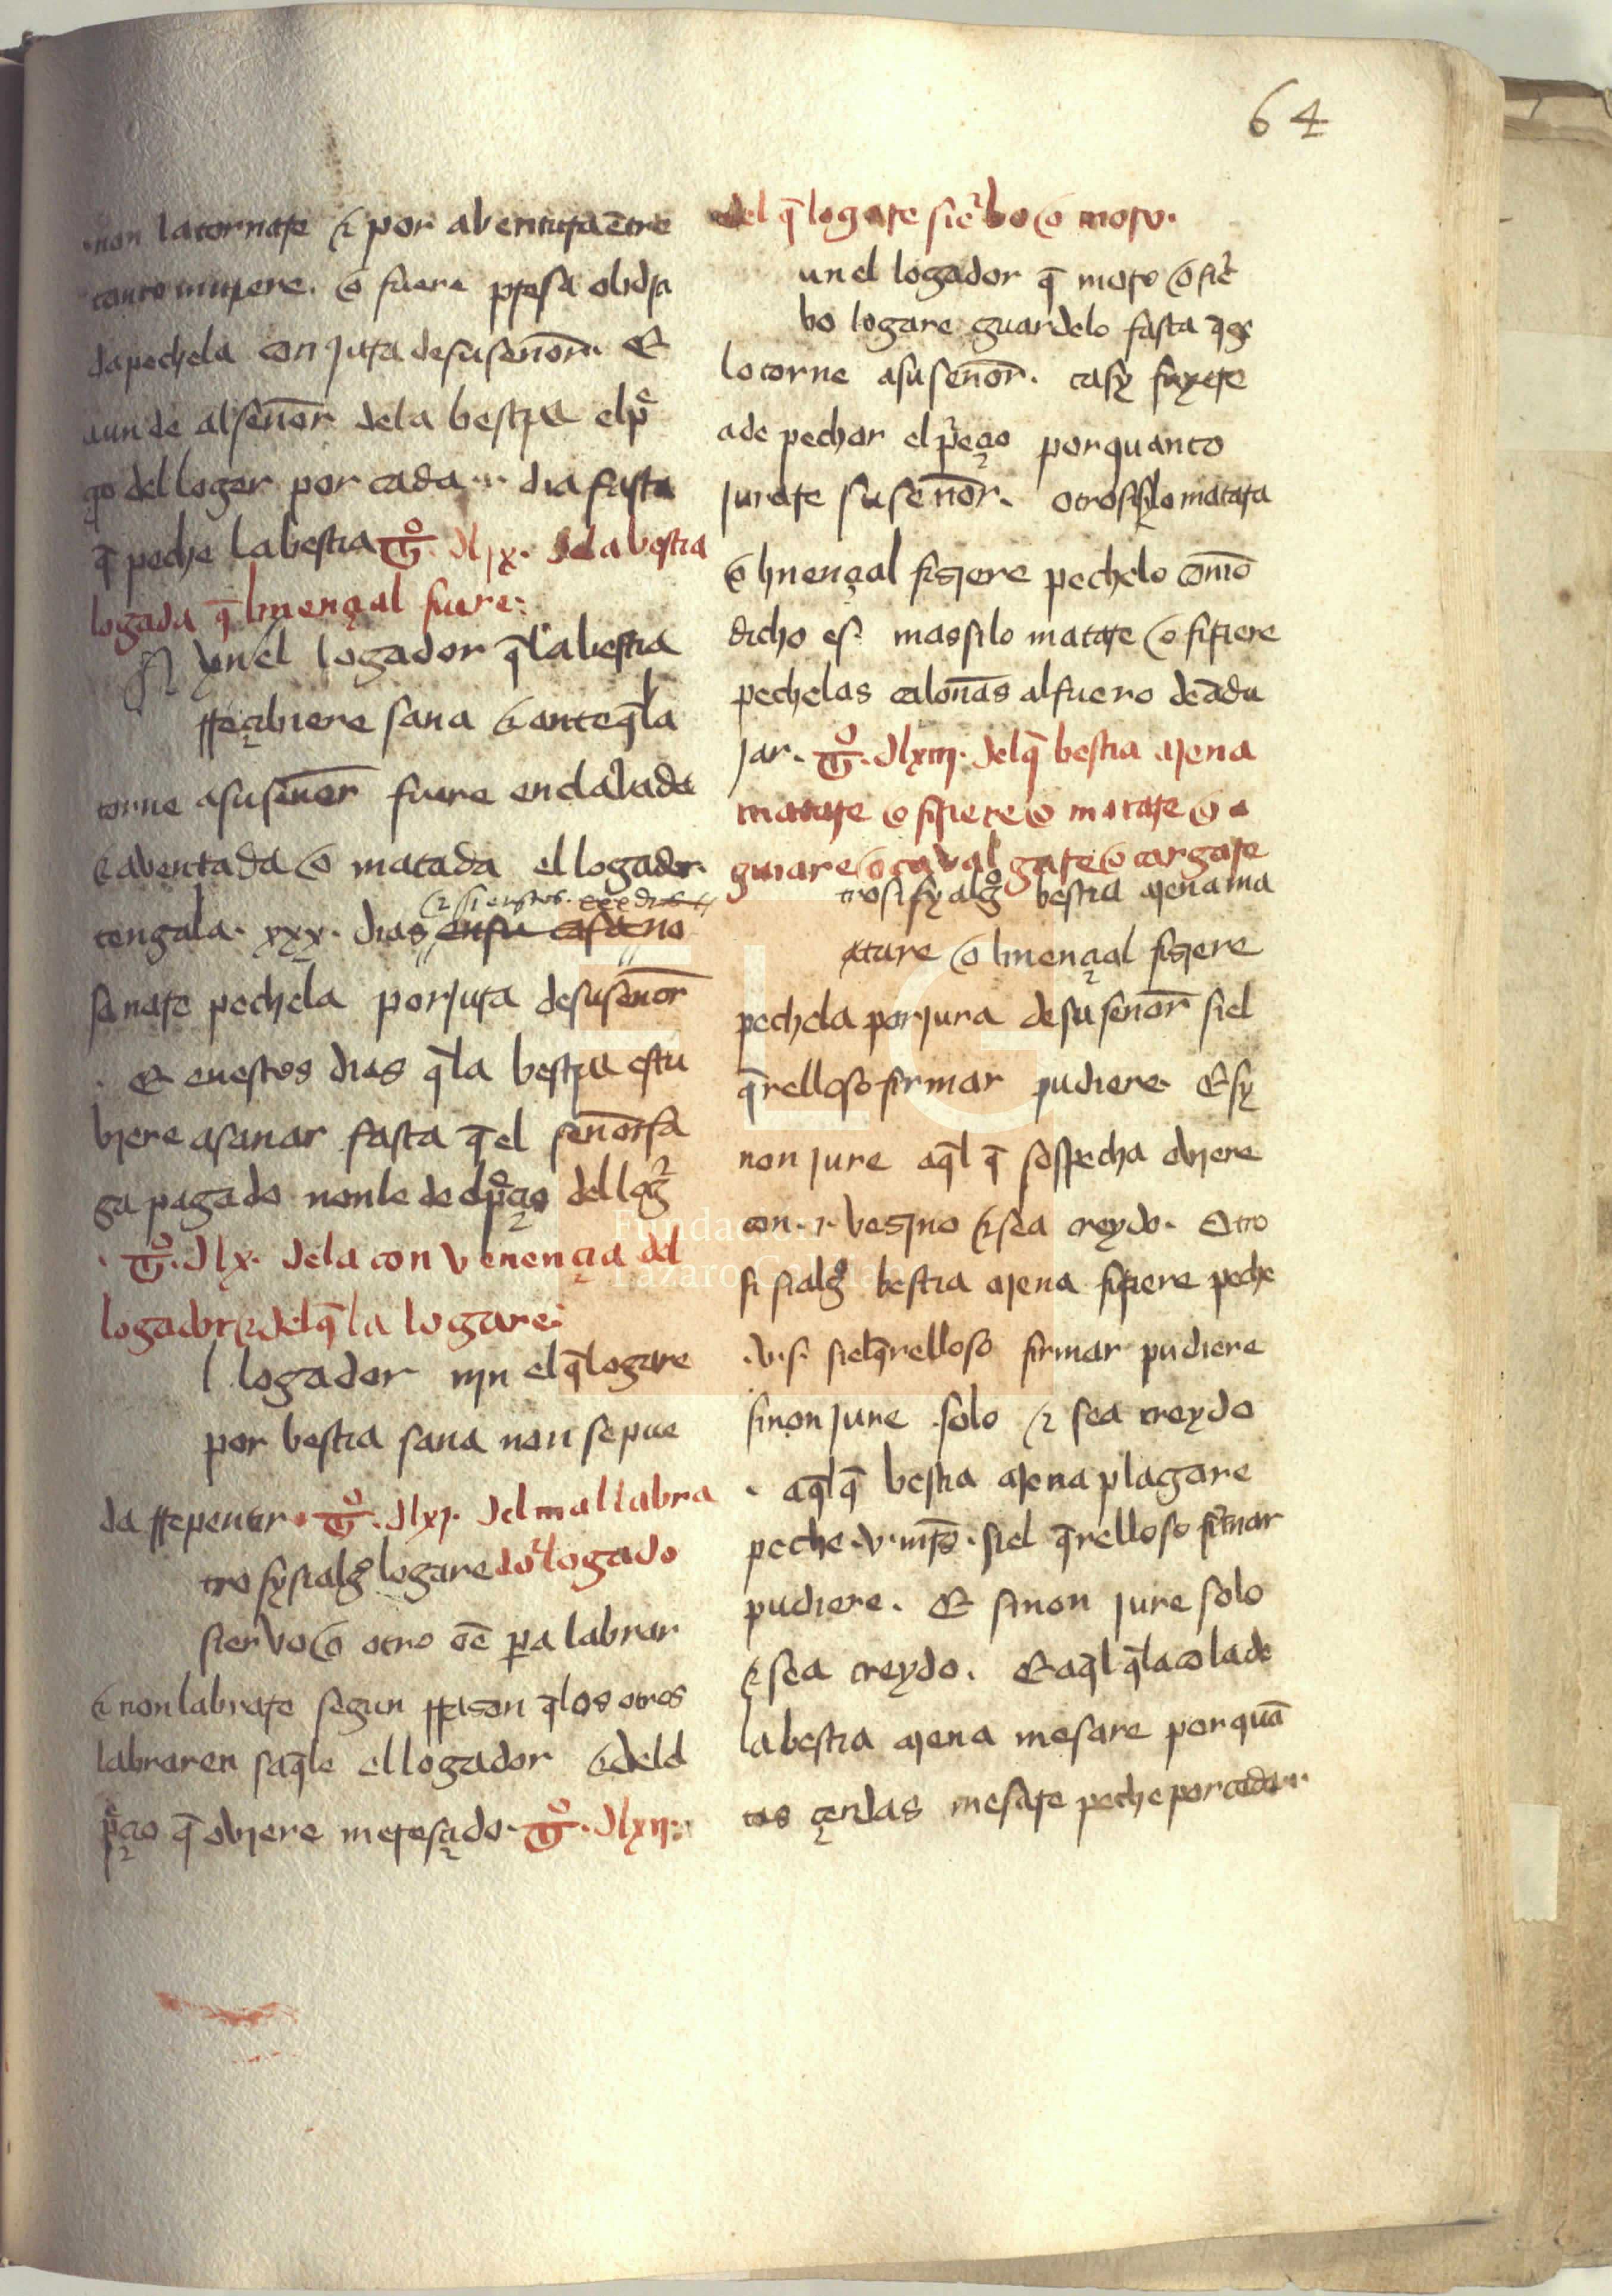 64
non la tornare & por abentura ētre
tanto muriere. o fuere presa o lidia
da pechela con jura de su señor. Et
aun de al señor de la bestia el p̄e
çio del loger por cada .i. dia fasta
q̄ peche la bestia Tº. dlix. de la bestia
logada q̄ linençal fuere.
Avn el logador q̄ la bestia
rreçibiere sana & ante q̄ la
torne a su señor fuere enclabada
& abentada o matada el logador
tengala. xxx. dias en su casa & si en estos. xxx dias no
sanare pechela por jura de su señor
Et en estos dias q̄ la bestia estu
biere a sanar fasta q̄ el señor fa
ga pagado non le de el p̄çio del loḡ
Tº. dlx. de la convenençia del
logador & del q̄ la logare.
l logador nin el q̄ logare
por bestia sana non se pue
da rrepentir. Tº. dlxi. del mal labra
tro sy si alg̊ logare dor logado
siervo o otro oē pa labrar
& non labrare segun rrason q̄ los otros
labraren saq̄le el logador & de el
p̄çio q̄ obiere mereçado. Tº. dlxii.
del q̄ logare sierbo o moro.
un el logador q̄ moro o sier
bo logare guardelo fasta q̄ ge
lo torne a su señor. ca sy fuyere
a de pechar el preçio por quanto
jurare su señor. otrosi sylo matara
o linençal fisiere pechelo comō
dicho es. mas silo matare o firiere
peche las caloñas al fuero de andu
jar. Tº. dlxiii. del q̄ bestia ajena
matare o firiere o matare o a
guiare o cavalgare o cargare
trosi sy alg̊ bestia ajena ma
atare o linençal fisiere
pechela por jura de su señor si el
q̄relloso firmar pudiere. Et sy
non jure aq̄l q̄ sospecha obiere
con .i. vesino & sea creydo. Otro
si si alg̊ bestia ajena firiere peche
.v. s. si el q̄relloso firmar pudiere
sinon jure solo & sea creydo
aq̄l q̄ bestia ajena plagare
peche .v. mrs. si el q̄relloso firmar
pudiere. Et sinon jure solo
& sea creydo. Et aq̄l q̄ la cola de
la bestia ajena mesare por quā
tas çerdas mesare peche por cada .i.